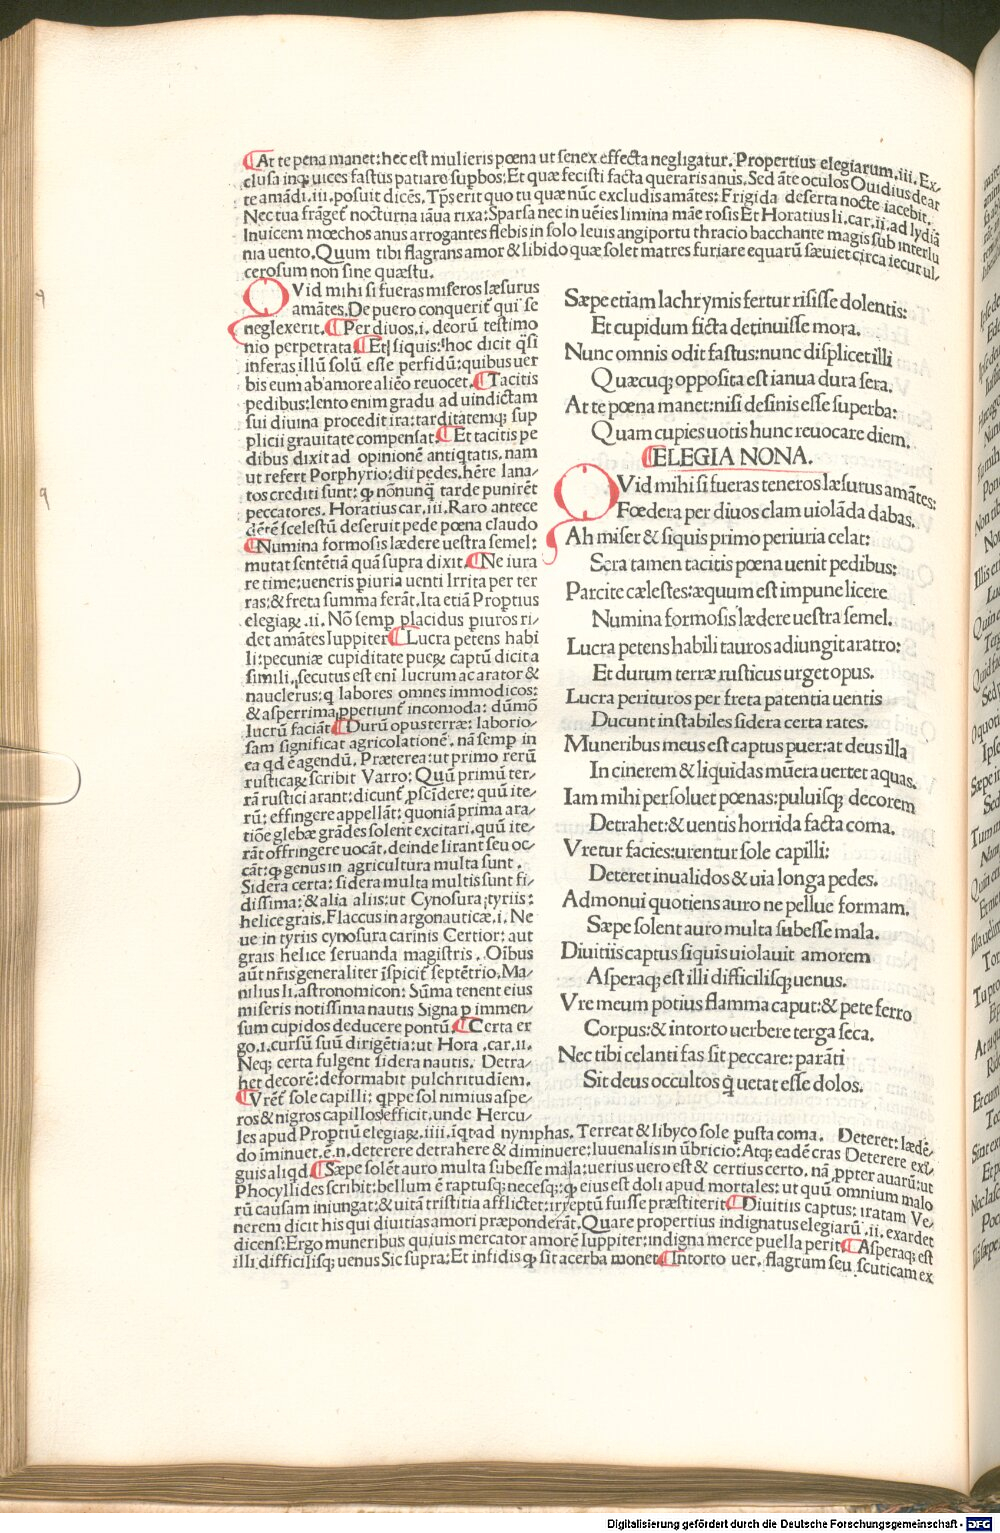 ¶At te pena manet: hec est mulieris pœna ut senex effecta negligatur. Propertius elegiarum. iii. Ex-
clusa inq̃ uices fastus patiare supbos: Et quæ fecisti facta queraris anus. Sed ãte oculos Ouidius de ar
te amãdi. iii. posuit dicẽs. Tp̃s erit quo tu quæ nũc excludis amãtes: Frigida deserta nocte iacebit.
Nec tua frãget nocturna iãua rixa: Sparsa nec inueies limina mãe rosis Et Horatius li. car. ii. ad lydiã
Inuicem mœchos anus arrogantes flebis in solo leuis angiportu thracio bacchante magis sub interlu
nia uento. Quum tibi flagrans amor & libido quæ solet matres furiare equarũ sæuiet circa iecur ul-
cerosum non sine quæstu.
QVid mihi si fueras miseros læsurus
amãtes. De puero conquerit̃ qui se
neglexerit. ¶Per diuos. i. deorũ testimo
nio perpetrata ¶Et siquis: hoc dicit q̃si
inferas illũ solũ esse perfidũ: quibus uer
bis eum ab amore alieo reuocet. ¶Tacitis
pedibus: lento enim gradu ad uindictam
sui diuina procedit ira: tarditatemq; sup
plicii grauitate compensat. ¶Et tacitis pe
dibus dixit ad opinionẽ antiq̃tatis. nam
ut refert Porphyrio: dii pedes. hẽre lana-
tos crediti sunt: ꝙ nõnunq̃ tarde punirẽt
peccatores. Horatius car. iii. Raro antece
dẽtẽ scelestũ deseruit pede pœna claudo
¶Numina formosis lædere uestra semel:
mutat sentẽtiã quã supra dixit. ¶Ne iura
re time: ueneris piuria uenti Irrita per ter
ras: & freta summa ferãt. Ita etiã Propertius
elegiaꝝ. ii. Nõ semp placidus piuros ri-
det amãtes Iuppiter ¶Lucra petens habi
li: pecuniæ cupiditate pueꝝ captũ dicit a
simili. secutus est eni lucrum ac arator &
nauclerus: q labores omnes immodicos:
& asperrima ppetiunt̃ incomoda: dũmõ
lucrũ faciãt ¶Durũ opus terræ: laborio-
sam significat agricolationẽ. nã semp in
ea qd ẽ agendũ. Præterea: ut primo rerũ
rusticaꝝ scribit Varro: Quũ primũ ter-
rã rustici arant: dicunt̃ pscĩdere: quũ ite-
rũ: effingere appellãt: quoniã prima ara-
tiõe glebæ grãdes solent excitari. quũ ite-
rãt offringere uocãt. deinde lirant seu oc-
cãt: ꝙ genus in agricultura multa sunt.
Sidera certa: sidera multa multis sunt fi-
dissima: & alia aliis: ut Cynosura tyriis:
helice grais. Flaccus in argonauticæ. i. Ne
ue in tyriis cynosura carinis Certior: aut
grais helice seruanda magistris. Oĩbus
aũt nris generaliter ispicit̃ septẽtrio. Ma-
nilius li. astronomicon: Sũma tenent eius
miseris notissima nautis Signa p immen-
sum cupidos deducere pontũ. ¶Certa er
go. i. cursũ suũ dirigẽtia: ut Hora. car. ii.
Neq; certa fulgent sidera nautis. Detra-
het decorẽ: deformabit pulchritudiem.
¶Vrẽt sole capilli: qppe sol nimius aspe-
ros & nigros capillos efficit. unde Hercu-
les apud Proptiũ elegiaꝝ. iiii. iq̃t ad nymphas. Terreat & libyco sole pusta coma. Deteret: lædẽ-
do iminuet. ẽ. n. deterere detrahere & diminuere: Iuuenalis in ũbricio: Atq; eadẽ cras Deterere exi-
guis aliqd. ¶Sæpe solẽt auro multa subesse mala: uerius uero est & certius certo. nã ppter auarũ: ut
Phocyllides scribit: bellum ẽ raptusq; necesq;: ꝙ eius est doli apud mortales: ut quũ omnium malo
rũ causam iniungat: & uitã tristitia afflictet: ireptũ fuisse præstiterit ¶Diuitiis captus: iratam Ve-
nerem dicit his qui diuitias amori præponderãt. Quare propertius indignatus elegiarũ. ii. exardet
dicens: Ergo muneribus quiuis mercator amorẽ Iuppiter: indigna merce puella perit. ¶Asperaq; est
illi difficilisq; uenus Sic supra: Et infidis ꝙ sit acerba monet ¶Intorto uer. flagrum seu scuticam ex
Sæpe etiam lachrymis fertur risisse dolentis:
Et cupidum ficta detinuisse mora.
Nunc omnis odit fastus: nunc displicet illi
Quæcuq; opposita est ianua dura sera.
At te pœna manet: nisi desinis esse superba:
Quam cupies uotis hunc reuocare diem.
¶ELEGIA NONA.
QVid mihi si fueras teneros læsurus amãtes:
Fœdera per diuos clam uiolãda dabas.
Ah miser & siquis primo periuria celat:
Sera tamen tacitis pœna uenit pedibus:
Parcite cælestes: æquum est impune licere
Numina formosis lædere uestra semel.
Lucra petens habili tauros adiungit aratro:
Et durum terræ rusticus urget opus.
Lucra perituros per freta patentia uentis
Ducunt instabiles sidera certa rates.
Muneribus meus est captus puer: at deus illa
In cinerem & liquidas mũera uertet aquas.
Iam mihi persoluet pœnas: puluisq; decorem
Detrahet: & uentis horrida facta coma.
Vretur facies: urentur sole capilli:
Deteret inualidos & uia longa pedes.
Admonui quotiens auro ne pellue formam.
Sæpe solent auro multa subesse mala.
Diuitiis captus siquis uiolauit amorem
Asperaq; est illi difficilisq; uenus.
Vre meum potius flamma caput: & pete ferro
Corpus: & intorto uerbere terga seca.
Nec tibi celanti fas sit peccare: parãti
Sit deus occultos q̃ uetat esse dolos.
Digitalisierung gefördert durch die Deutsche Forschungsgemeinschaft - DFG